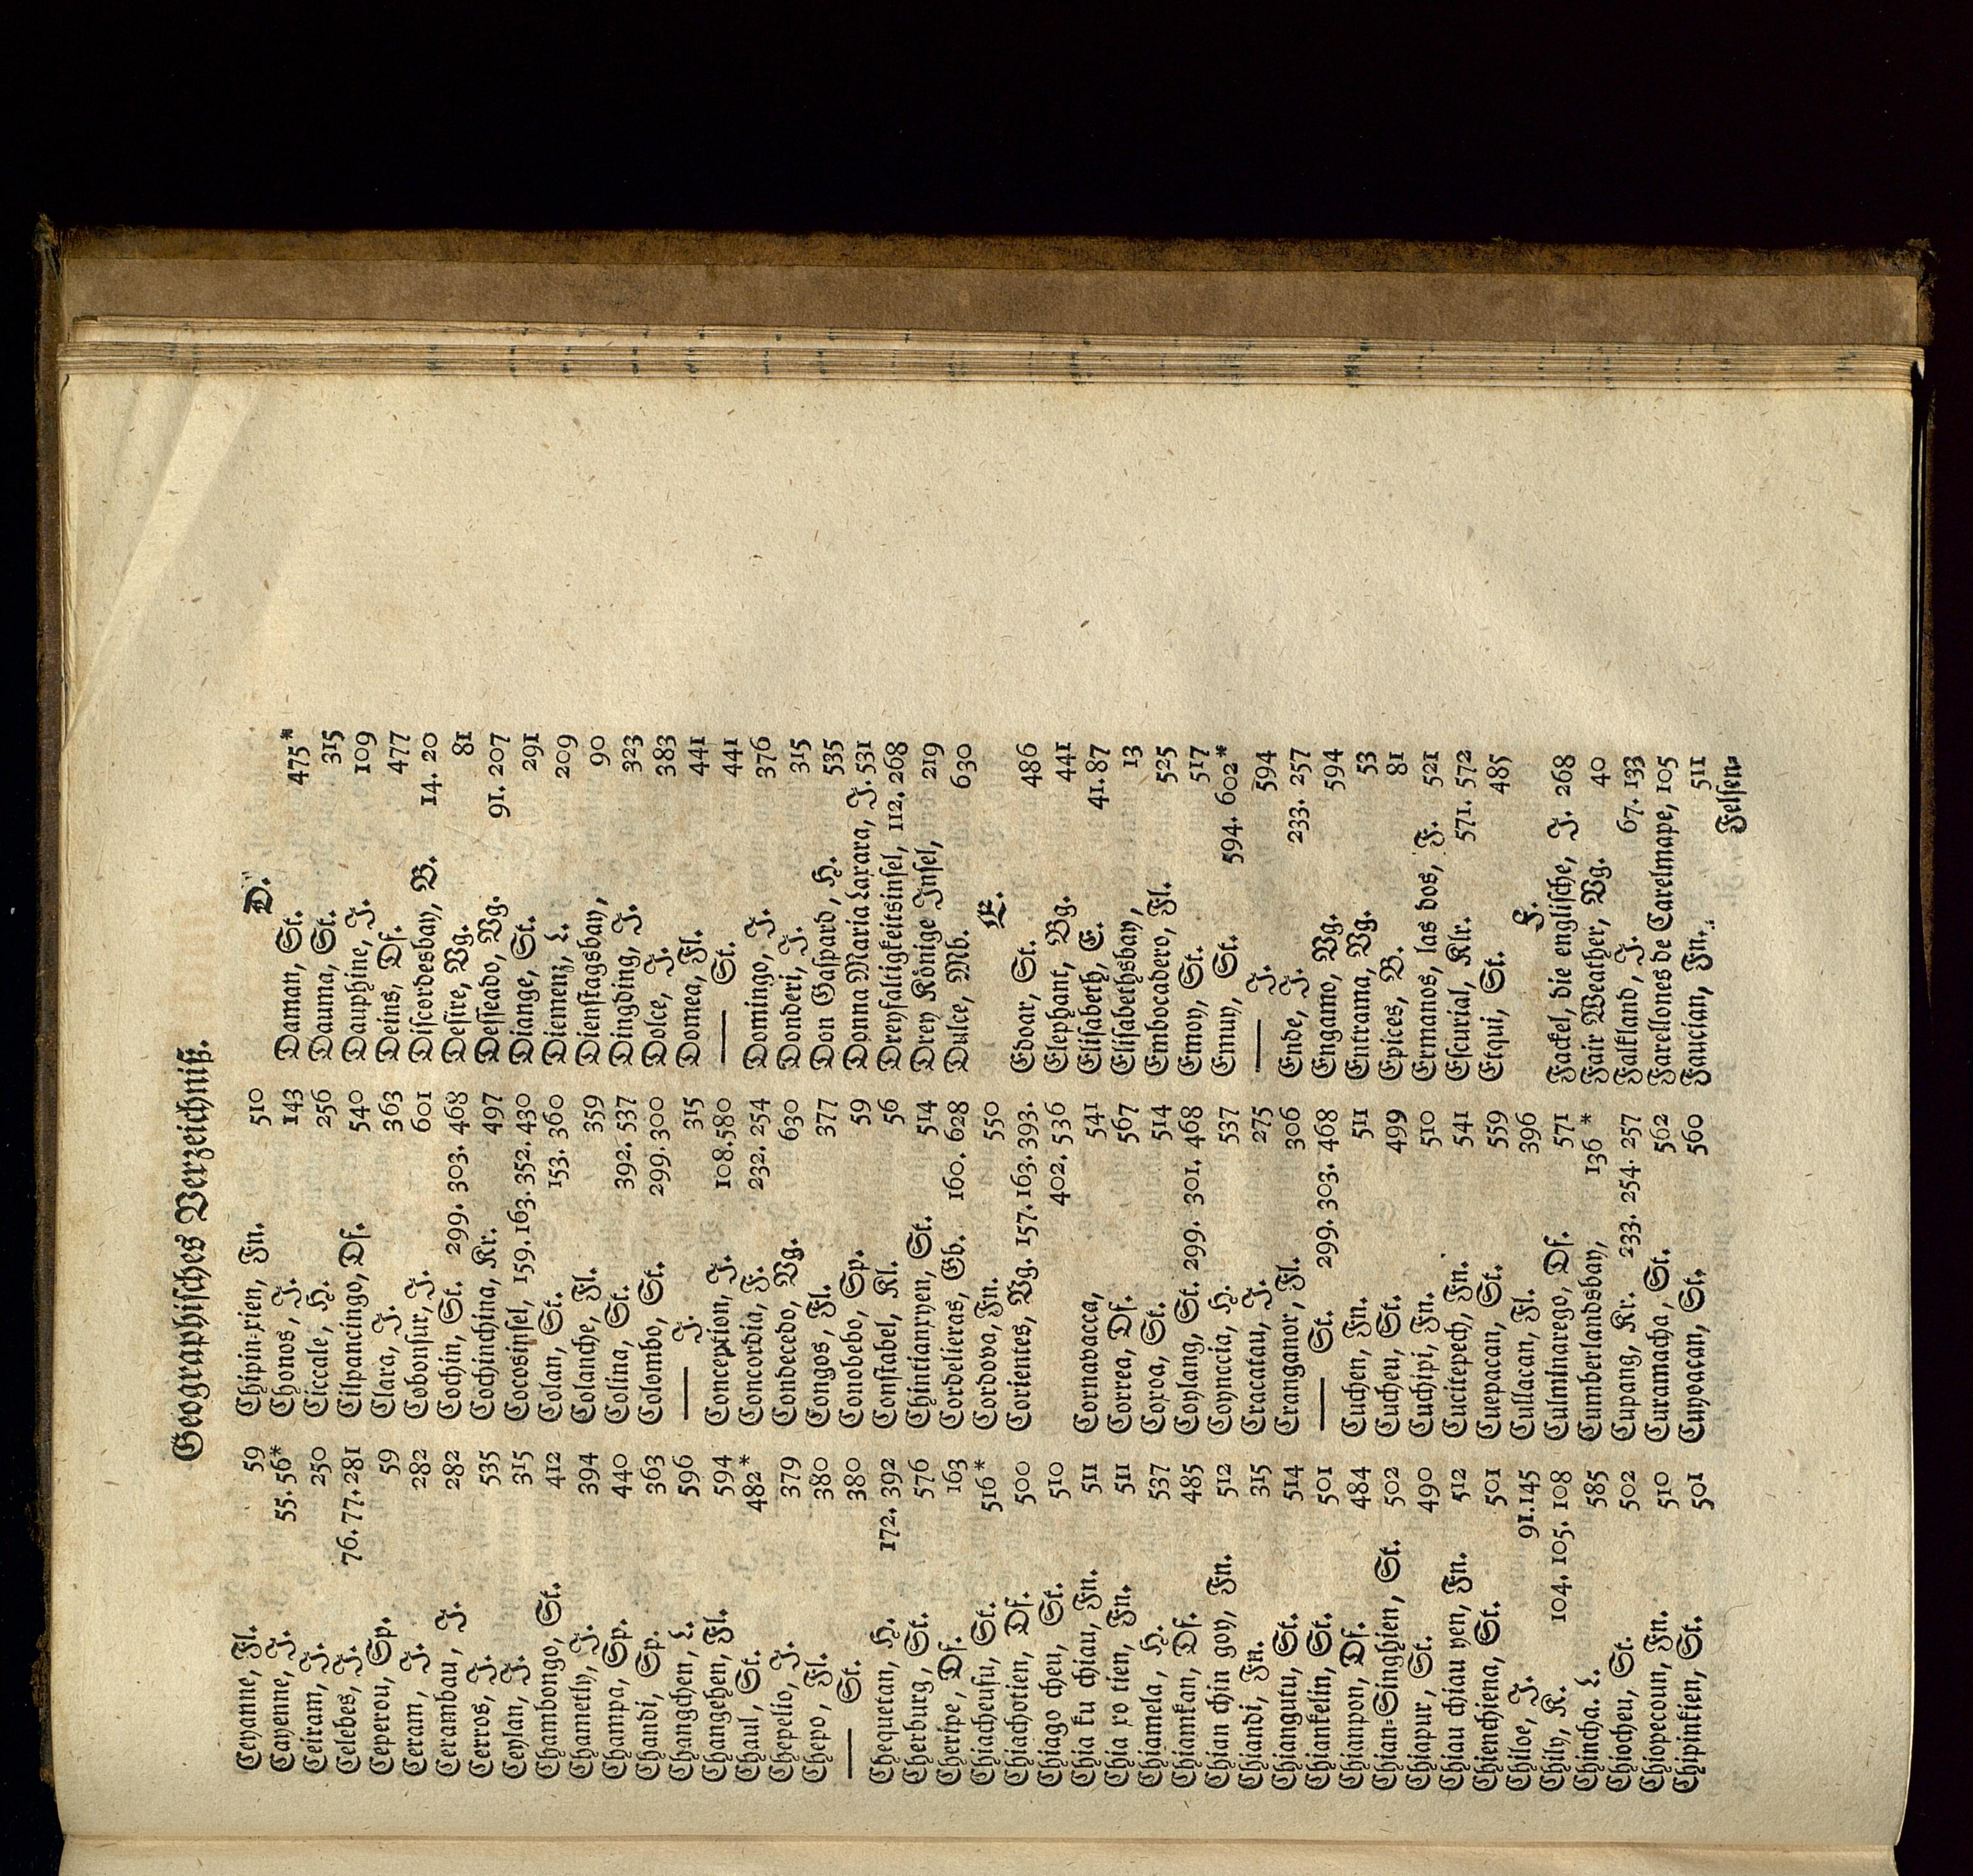 Geographisches Verzeichniß.
Ceyanne, Fl. 59
Cayenne, J. 55. 56*
Ceiram, J. 250
Celebes, J. 76. 77. 281
Ceperou, Sp. 59
Ceram, J. 282
Cerambau, J. 282
Cerros, J. 535
Ceylan, J. 315
Chambongo, St. 412
Chametly, J. 394
Champa, Sp. 440
Chandi, Sp. 363
Changchen, L. 596
Changehen, Fl. 594
Chaul, St. 482*
Chepelio, J. 379
Chepo, Fl. 380
—— St. 380
Chequetan, H. 172. 392
Cherburg, St. 576
Cheripe, Df. 163
Chiacheufu, St. 516*
Chiachotien, Df. 500
Chiago cheu, St. 510
Chia ku chiau, Fn. 511
Chia xo tien, Fn. 511
Chiamela, H. 537
Chiamkan, Df. 485
Chian chin goy, Fn. 512
Chiandi, Fn. 315
Chiangutu, St. 514
Chiankelin, St. 501
Chianpon, Df. 484
Chian=Singhien, St. 502
Chiapur, St. 490
Chiau chiau yen, Fn. 512
Chienchiena, St. 501
Chiloe, J. 91. 145
Chily, K. 104. 105. 108
Chincha. L. 585
Chiocheu, St. 502
Chiopecoun, Fn. 510
Chipinkien, St. 501
Chipin=xien, Fn. 510
Chonos, J. 143
Ciccale, H. 256
Cilpancingo, Df. 540
Clara, J. 363
Cobonsur, J. 601
Cochin, St. 299. 303. 468
Cochinchina, Kr. 497
Cocosinsel, 159. 163. 352. 430
Colan, St. 153. 360
Colanche, Fl. 359
Colina, St. 392. 537
Colombo, St. 299. 300
—— J. 315
Conception, J. 108. 580
Concordia, F. 232. 254
Condecedo, Vg. 630
Congos, Fl. 377
Conobebo, Sp. 59
Constabel, Kl. 56
Chintianxyen, St. 514
Cordelieras, Gb. 160. 628
Cordova, Fn. 550
Corientes, Vg. 157. 163. 393.
402. 536
Cornavacca, 541
Correa, Df. 567
Coxoa, St. 514
Coylang, St. 299. 301. 468
Coyncia, H. 537
Cracatau, J. 275
Cranganor, Fl. 306
—— St. 299. 303. 468
Cuchen, Fn. 511
Cucheu, St. 499
Cuchipi, Fn. 510
Cucitepech, Fn. 541
Cuepacan, St. 559
Cullacan, Fl. 396
Culminarego, Df. 571
Cumberlandsbay, 136 *
Cupang, Kr. 233. 254. 257
Curamacha, St. 562
Cuyoacan, St. 560
D.
Daman, St. 475*
Dauma, St. 315
Dauphine, J. 109
Deins, Df. 477
Discordesbay, B. 14. 20
Desire, Vg. 81
Desseado, Vg. 91. 207
Diange, St. 291
Diemenz, L. 209
Dienstagsbay, 90
Dingding, J. 323
Dolce, J. 383
Domea, Fl. 441
—— St. 441
Domingo, J. 376
Donderi, J. 315
Don Gaspard, H. 535
Donna Maria Laxara, J. 531
Dreyfaltigkeitsinsel, 112. 268
Drey Könige Insel, 219
Dulce, Mb. 630
E.
Edoar, St. 486
Elephant, Vg. 441
Elisabeth, E. 41. 87
Elisabethsbay, 13
Embocadero, Fl. 525
Emoy, St. 517
Emuy, St. 594. 602*
—— J. 594
Ende, J. 233. 257
Engamo, Vg. 594
Entrama, Vg. 53
Epices, B. 81
Ermanos, las dos, F. 521
Escurial, Klr. 571. 572
Etqui, St. 485
F.
Fackel, die englische, J. 268
Fair Weather, Vg. 40
Falkland, J. 67. 133
Farellones de Carelmape, 105
Faucian, Fn. 511
Felsen=